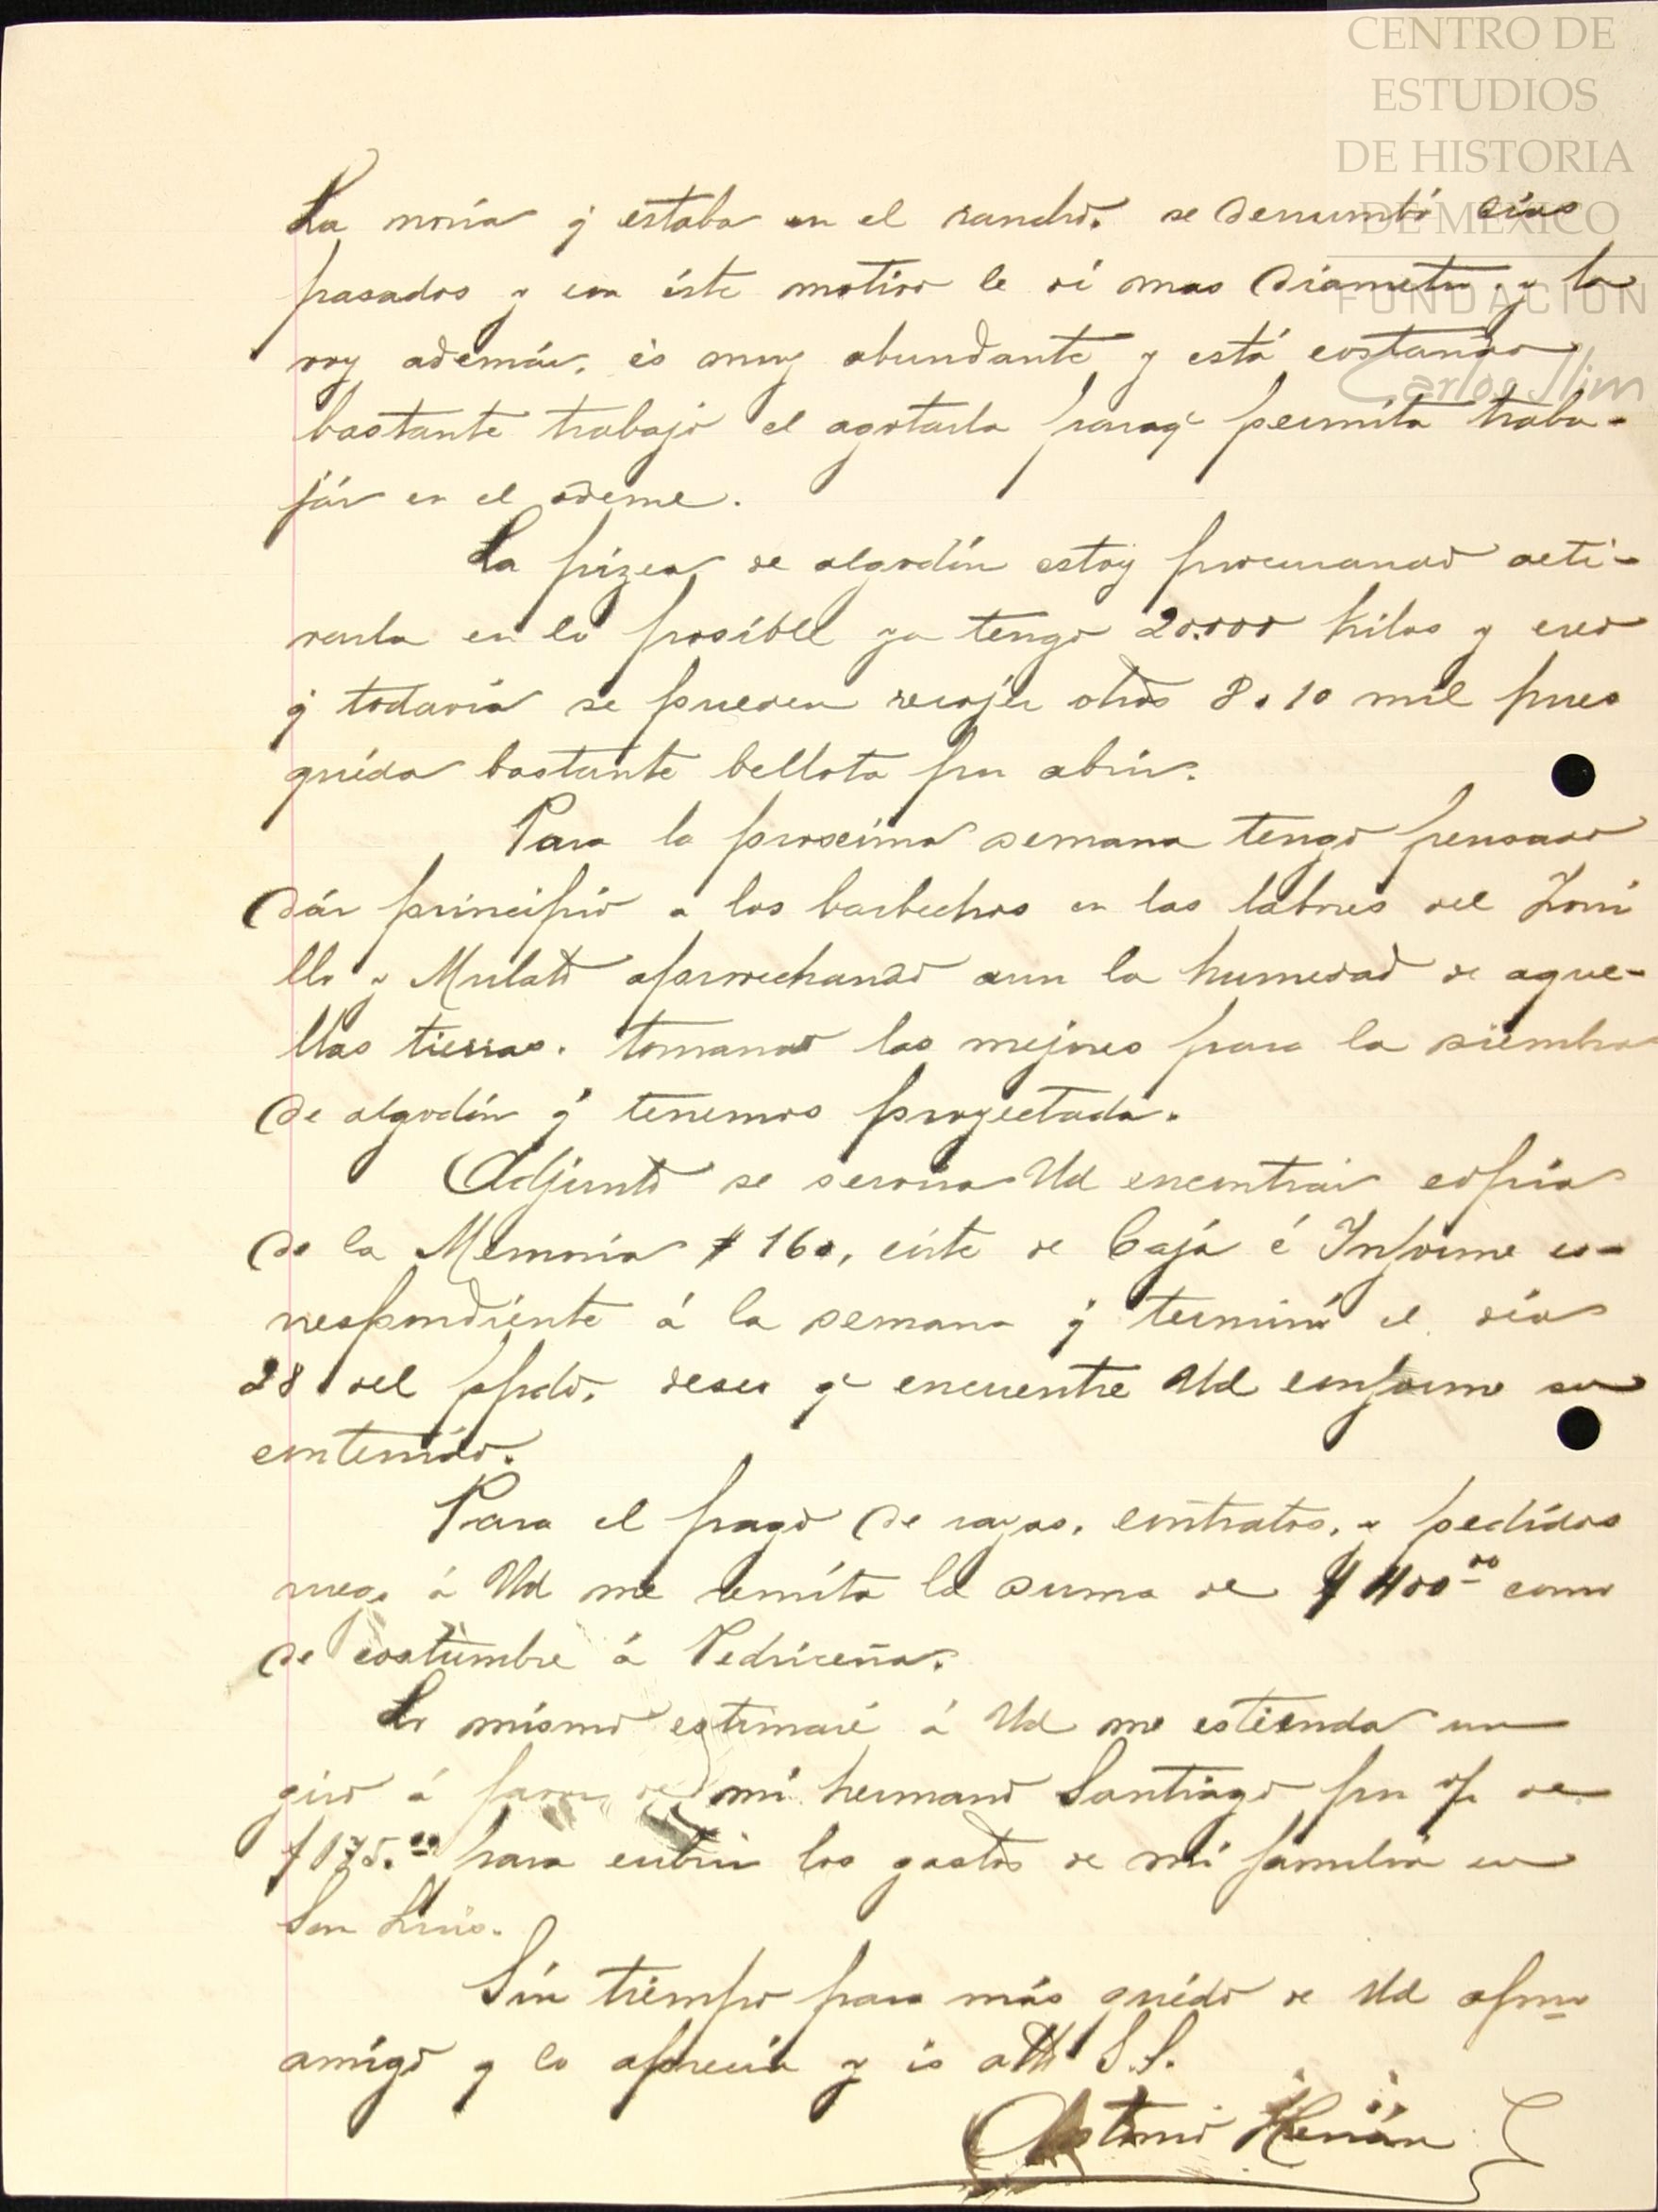 CENTRO DE
ESTUDIOS
DE HISTORIA
DE MÉXICO
FUNDACIÓN
Carlos Slim
La noria q̃ estaba en el rancho, se derrumbó días
pasados y con éste motivo le di mas diametro, y la
voy además, és muy abundante y está costando
bastante trabajo el agotarla paraq̃ permita traba-
jár en el ademe.
La pizca de algodón estoy procurando acti-
varla en lo posible ya tengo 20.000 kilos y creo
q̃ todavía se pueden recojér otros 8 o 10 mil pues
quéda bastante bellota por abrir.
Para la proxima semana tengo pensado
dár principio a los barbechos en las labores del Zorri
llo y Mulato aprovechando aun la humedad de aque-
llas tierras. tomando las mejores para la siembra
de algodón q̃ tenemos proyectada.
Adjunto se servira Ud encontrar cópia
de la Memoria # 160, córte de Cajá é Informe co-
rrespondiente á la semana q̃ terminó el día
28 del ppdo, deseo q̃ encuentre Ud conforme su
contenido.
Para el pago de rayas, contratos, y pedidos
ruego á Ud me remita la suma de $ 400 00 como
de costumbre á Pedriceña.
Lo mismo estimaré á Ud me estienda un
giro á favor de mi hermano Santiago por de
$ 175.00 para cubrir los gastos de mi familia en
San Luis.
Sin tiempo para más quédo de Ud afmo
amigo q lo aprecia y és att S.S.
Antonio